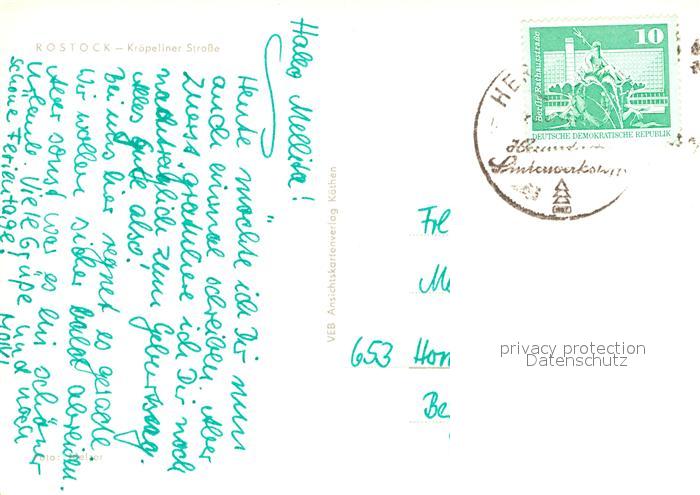 ROSTOCK — Kröpeliner Straße
Hallo Mellita!
Heute möchte ich Dir nun
auch einmal schreiben. Aber
zuerst gratuliere ich Dir noch
nachträglich zum Geburtstag.
Alles Gute also!
Bei uns hier regnet es gerade
Wir wollen sicher bald abreisen.
Aber sonst war es ein schöner
Urlaub. Viele Grüße und noch
schöne Ferientage!
VEB Ansichtskartenverlag Köthen
10
Berlin, Rathausstraße
DEUTSCHE DEMOKRATISCHE REPUBLIK
Frl
653
privacy protection
Datenschutz